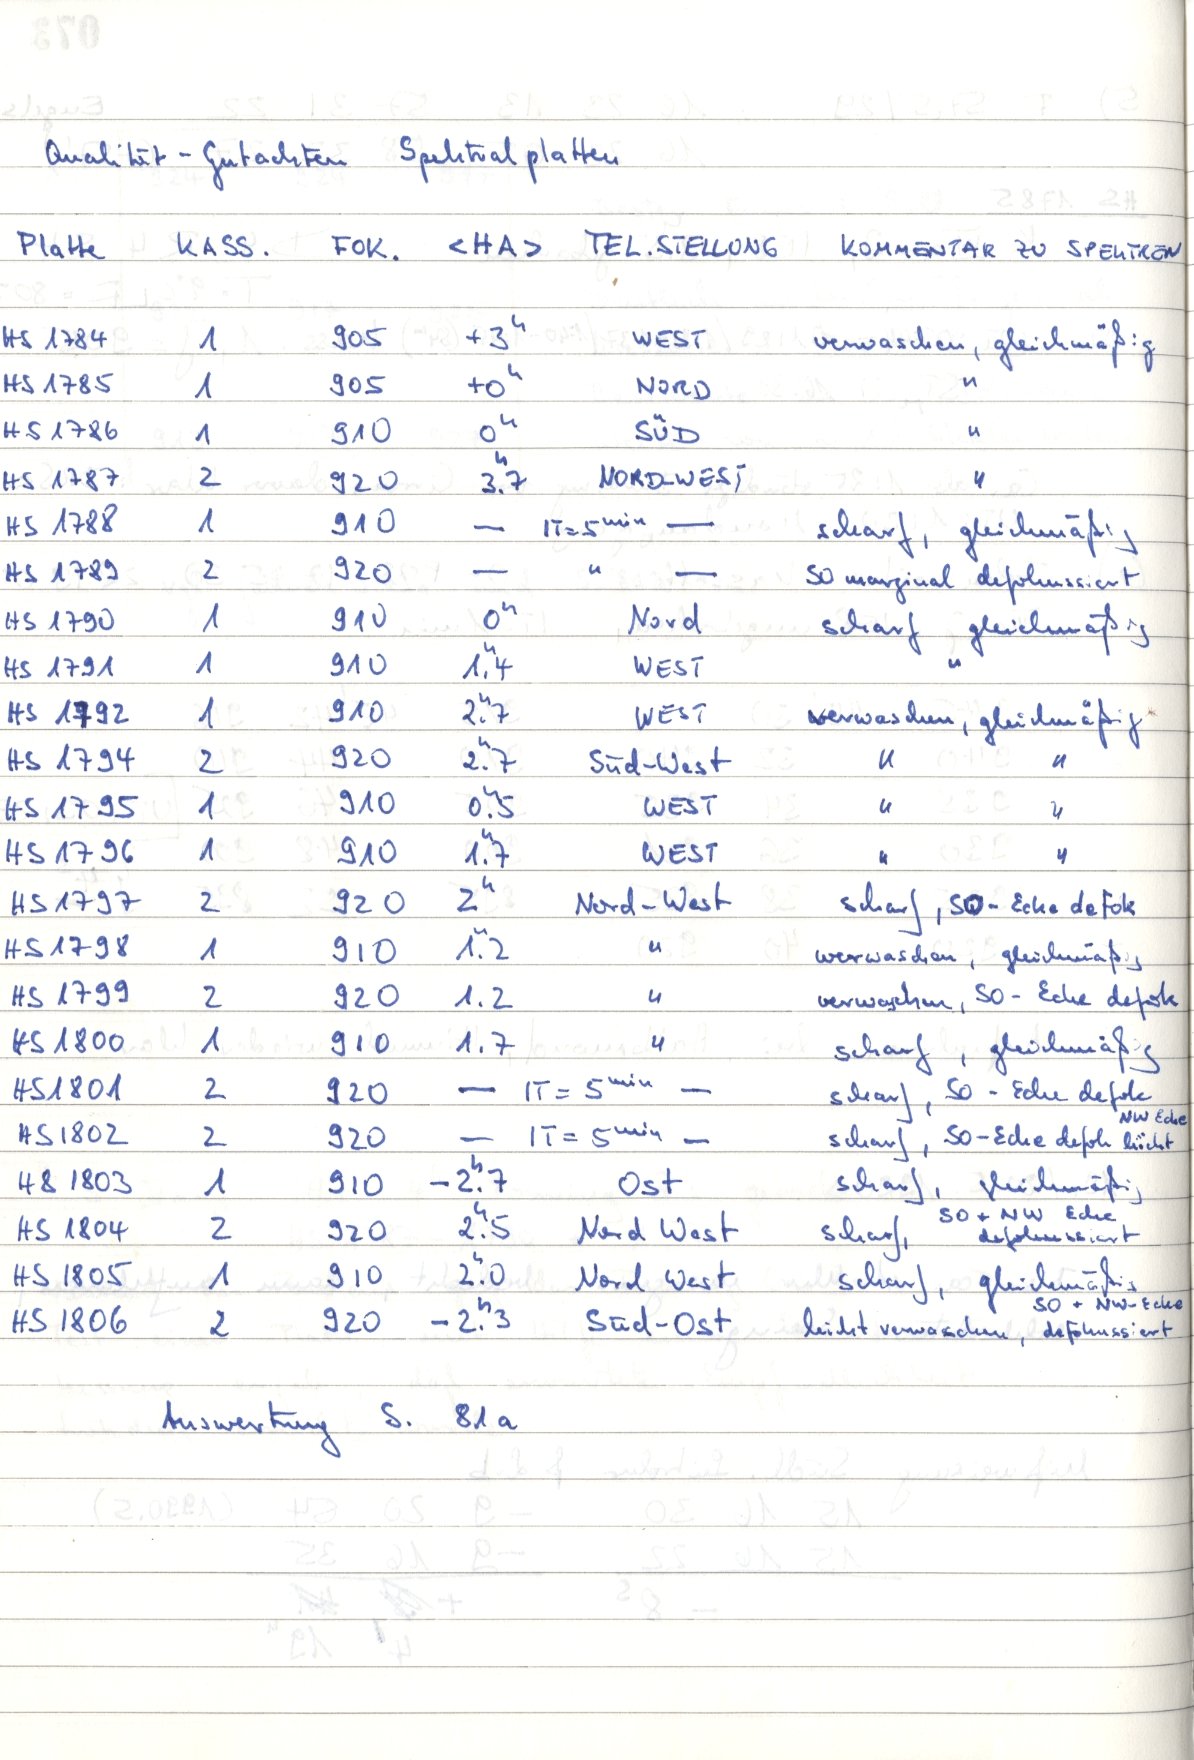 Qualität - Gutachten Spektralplatten
Platte KASS. FOK. <HA> TEL.STELLUNG KOMMENTAR ZU SPEKTREN
HS 1784 1 905 +3h WEST verwaschen, gleichmäßig
HS 1785 1 905 +0h NORD "
HS 1786 1 910 0h SÜD "
HS 1787 2 920 3h.7 NORD-WEST "
HS 1788 1 910 — IT=5min — scharf, gleichmäßig
HS 1789 2 920 — " — SO marginal defokussiert
HS 1790 1 910 0h Nord scharf gleichmäßig
HS 1791 1 910 1h.4 WEST "
HS 1792 1 910 2h.7 WEST verwaschen, gleichmäßig
HS 1794 2 920 2h.7 Süd-West " "
HS 1795 1 910 0h.5 WEST " "
HS 1796 1 910 1h.7 WEST " "
HS 1797 2 920 2h Nord-West scharf, SO-Ecke defok
HS 1798 1 910 1h.2 " verwaschen, gleichmäßig
HS 1799 2 920 1.2 " verwaschen, SO-Ecke defok
HS 1800 1 910 1.7 " scharf, gleichmäßig
HS1801 2 920 — IT=5min — scharf, SO-Ecke defok
HS1802 2 920 — IT=5min — scharf, SO-Ecke defok NW Ecke leicht
HS 1803 1 910 -2h.7 Ost scharf, gleichmäßig
HS 1804 2 920 2h.5 Nord West scharf, SO + NW Ecke defokussiert
HS 1805 1 910 2h.0 Nord West scharf, gleichmäßig
HS 1806 2 920 -2h.3 Süd-Ost leicht verwaschen, SO + NW-Ecke defokussiert
Auswertung S. 81a